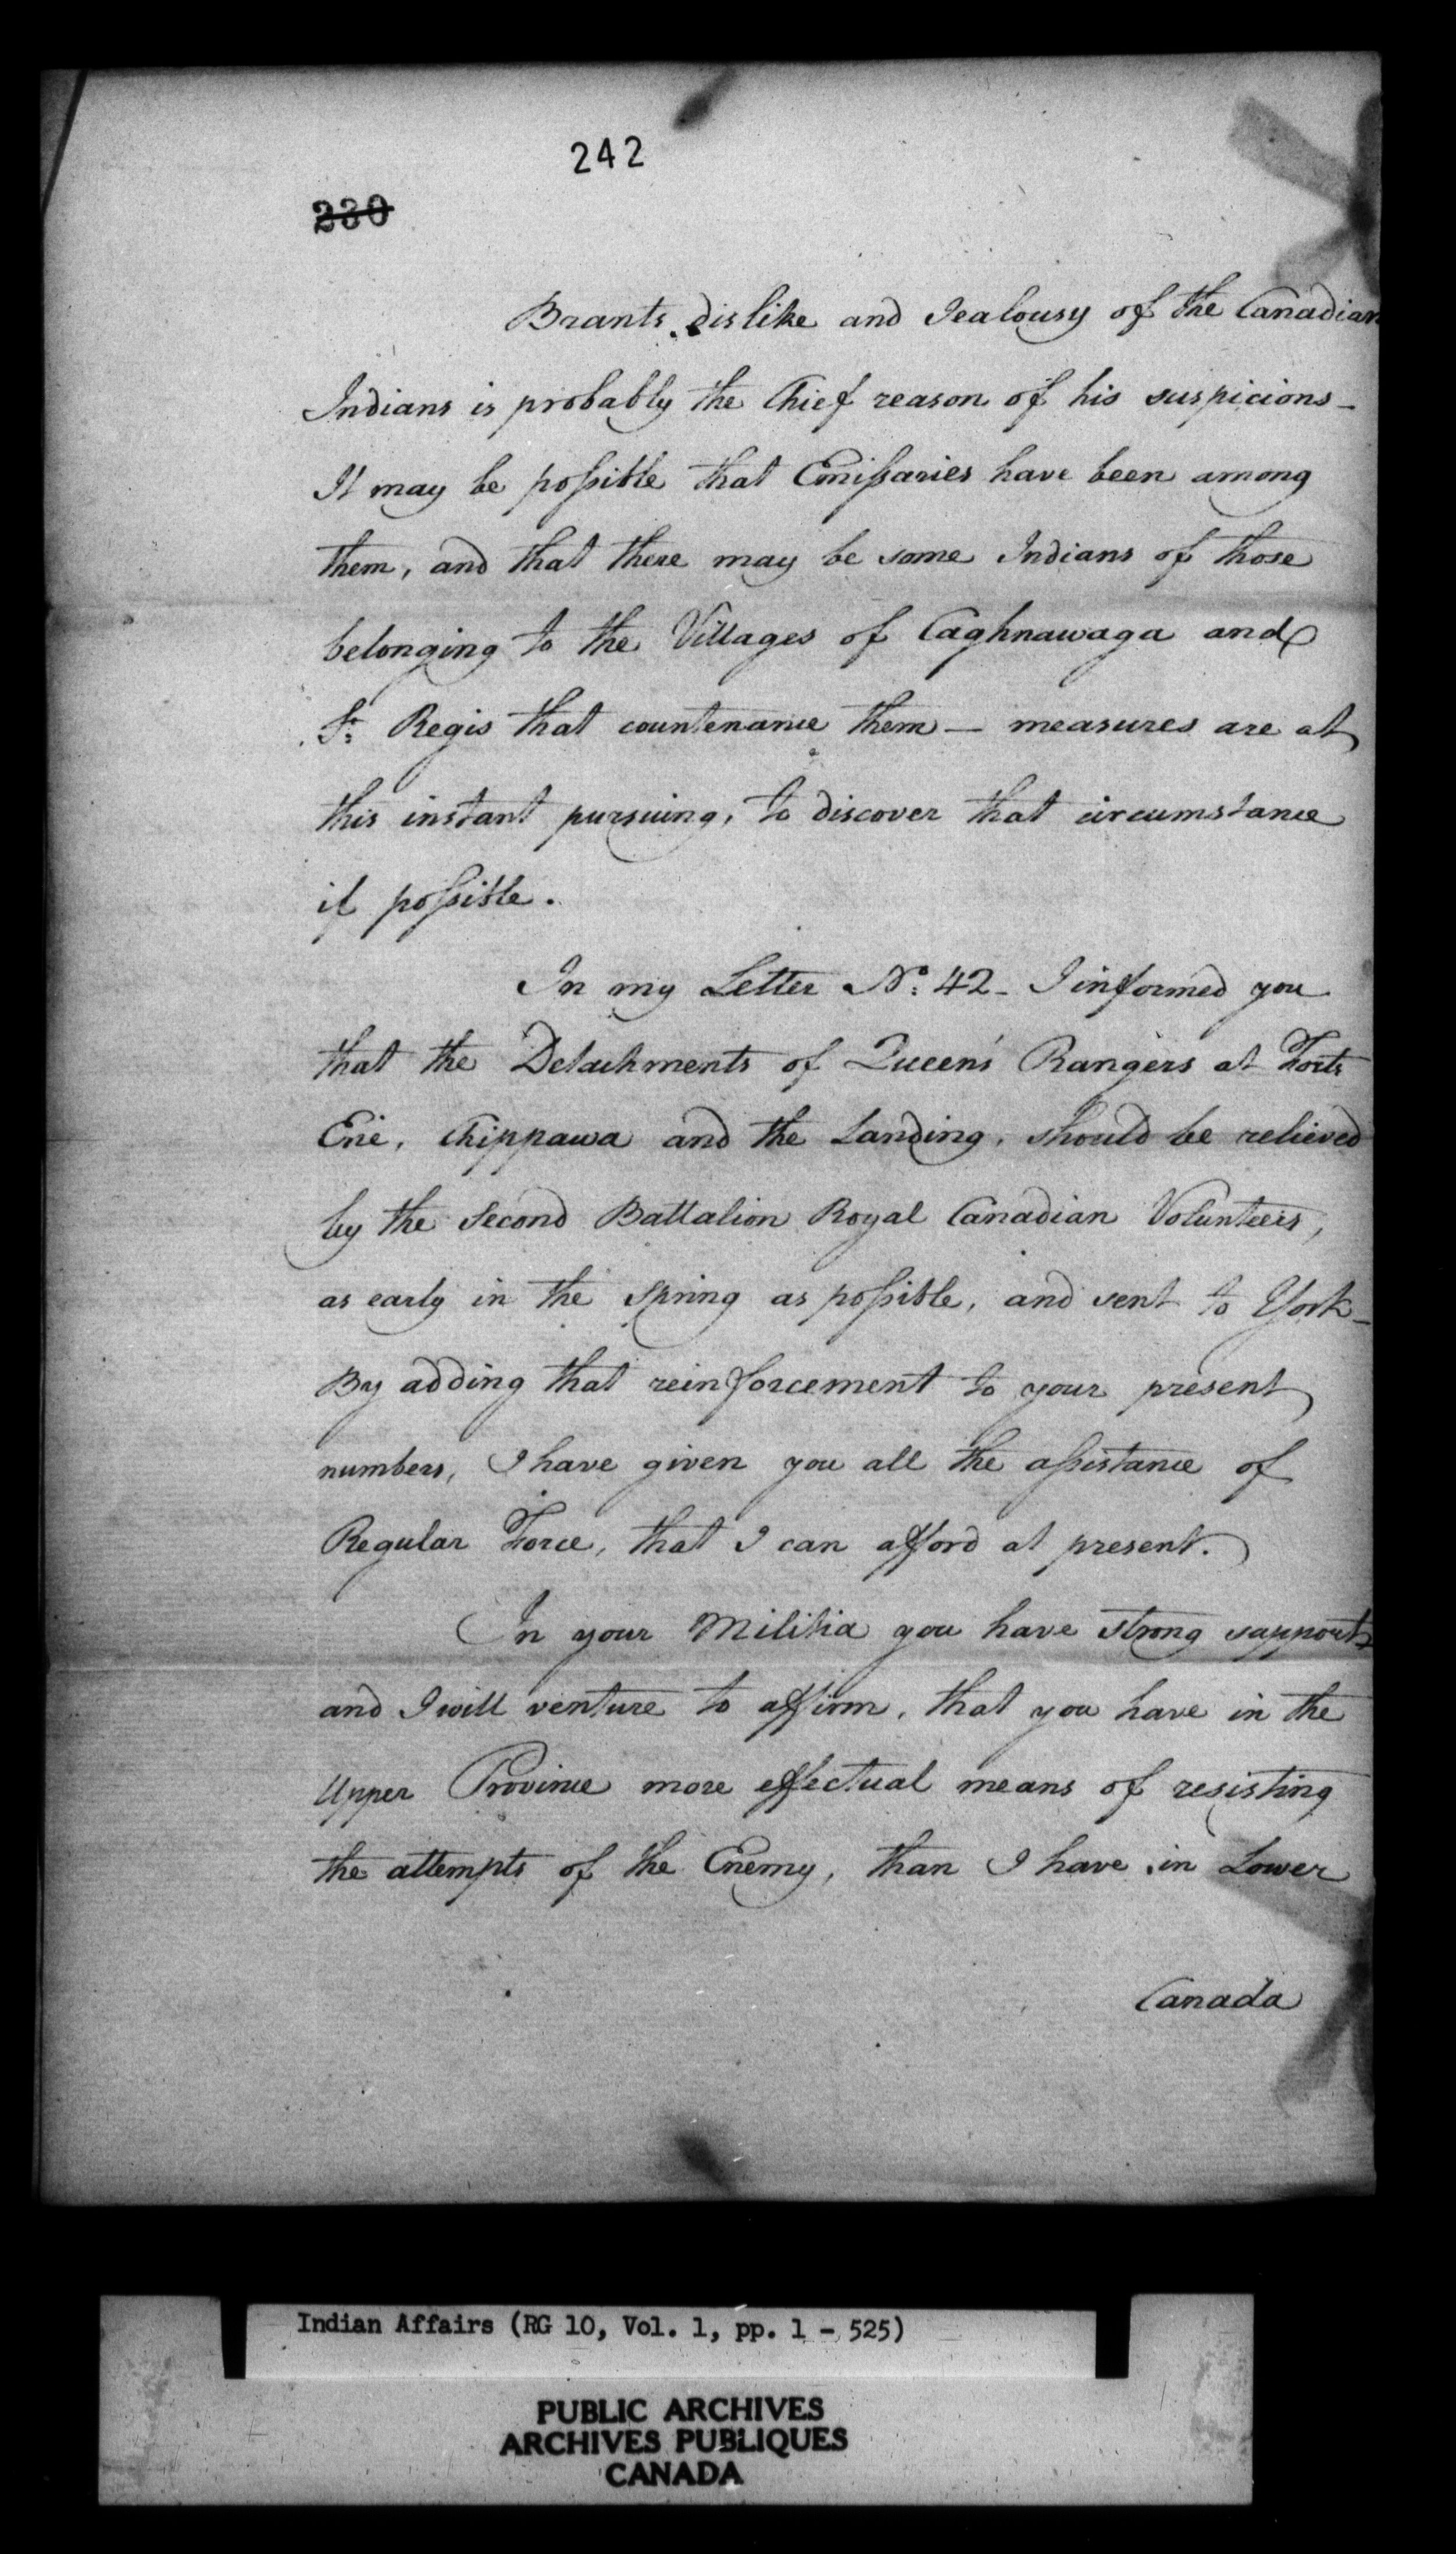 242
230
Brants dislike and Jealousy of the Canadian
Indians is probably the Chief reason of his suspicions_
It may be poſsible that Emiſsaries have been among
them, and that there may be some Indians of those
belonging to the Villages of Caghnawaga and
St. Regis that countenance them — measures are at
this instant pursuing, to discover that circumstance
if poſsible.
In my Letter No. 42_ I informed you
that the Detachments of Queen's Rangers at Forts
Erie, Chippawa and the Landing, should be relieved
by the Second Battalion Royal Canadian Volunteers,
as early in the Spring as poſsible, and sent to York_
By adding that reinforcement to your present
numbers, I have given you all the aſsistance of
Regular Force, that I can afford at present.
In your Militia you have strong support
and I will venture to affirm, that you have in the
Upper Province more effectual means of resisting
the attempts of the Enemy, than I have in Lower
Canada
Indian Affairs (RG 10, Vol. 1, pp. 1 - 525)
PUBLIC ARCHIVES
ARCHIVES PUBLIQUES
CANADA